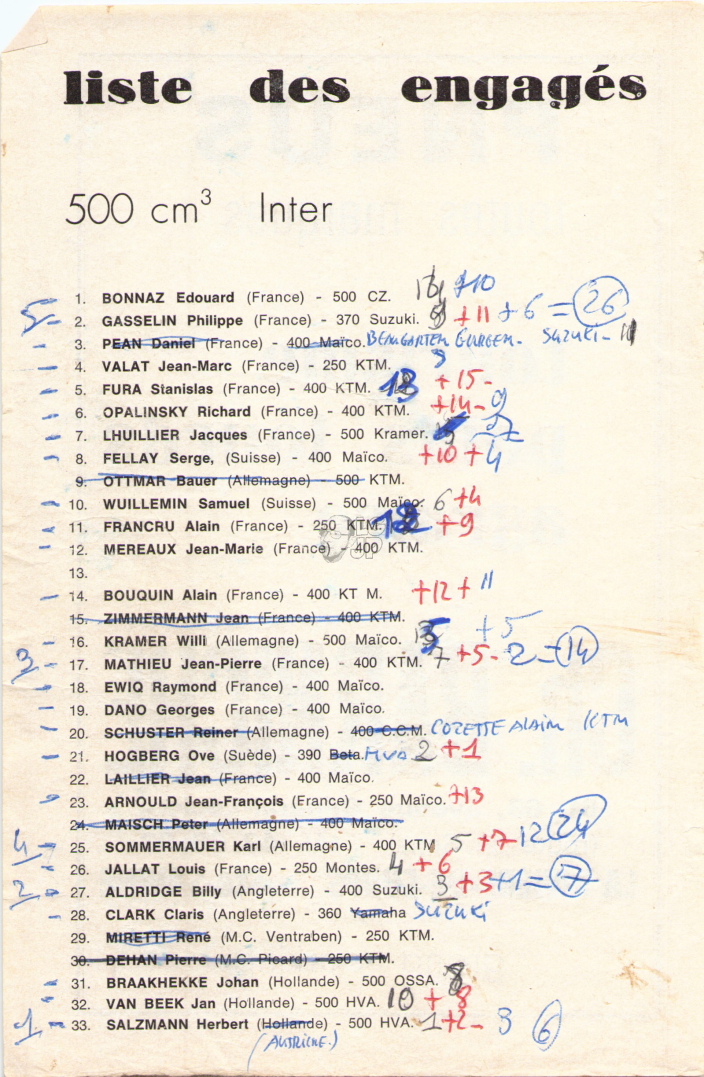 liste des engagés
500 cm³ Inter
1. BONNAZ Edouard (France) - 500 CZ. +10
5 - 2. GASSELIN Philippe (France) - 370 Suzuki. 9 + 11 + 6 = 26
- 3. PEAN Daniel (France) - 400 Maïco. SUZUKI - 11
- 4. VALAT Jean-Marc (France) - 250 KTM.
- 5. FURA Stanislas (France) - 400 KTM. 13 + 15 -
- 6. OPALINSKY Richard (France) - 400 KTM. +14 - 9
- 7. LHUILLIER Jacques (France) - 500 Kramer.
- 8. FELLAY Serge, (Suisse) - 400 Maïco. +10 + 4
9. OTTMAR Bauer (Allemagne) - 500 KTM.
- 10. WUILLEMIN Samuel (Suisse) - 500 Maïco. 6 +4
- 11. FRANCRU Alain (France) - 250 KTM. 12 +9
- 12. MEREAUX Jean-Marie (France) - 400 KTM.
13.
- 14. BOUQUIN Alain (France) - 400 KT M. +12 + 11
15. ZIMMERMANN Jean (France) - 400 KTM.
- 16. KRAMER Willi (Allemagne) - 500 Maïco. +5
3 - 17. MATHIEU Jean-Pierre (France) - 400 KTM. 7 +5 - 2 = 14
- 18. EWIQ Raymond (France) - 400 Maïco.
- 19. DANO Georges (France) - 400 Maïco.
- 20. SCHUSTER Reiner (Allemagne) - 400 C.C.M. COZETTE ALAIN KTM
- 21. HOGBERG Ove (Suède) - 390 Beta. HVA 2 +1
22. LAILLIER Jean (France) - 400 Maïco.
- 23. ARNOULD Jean-François (France) - 250 Maïco. +13
24. MAISCH Peter (Allemagne) - 400 Maïco.
4 - 25. SOMMERMAUER Karl (Allemagne) - 400 KTM 5 +7 - 12 24
- 26. JALLAT Louis (France) - 250 Montes. 4 + 6
2 - 27. ALDRIDGE Billy (Angleterre) - 400 Suzuki. 3 +3 +1 = 7
- 28. CLARK Claris (Angleterre) - 360 Yamaha SUZUKI
29. MIRETTI René (M.C. Ventraben) - 250 KTM.
30. DEHAN Pierre (M.C. Picard) - 250 KTM.
- 31. BRAAKHEKKE Johan (Hollande) - 500 OSSA. 8
- 32. VAN BEEK Jan (Hollande) - 500 HVA. 10 + 8
1 - 33. SALZMANN Herbert (Hollande) - 500 HVA. 1 +2 - 3 6
(AUTRICHE.)